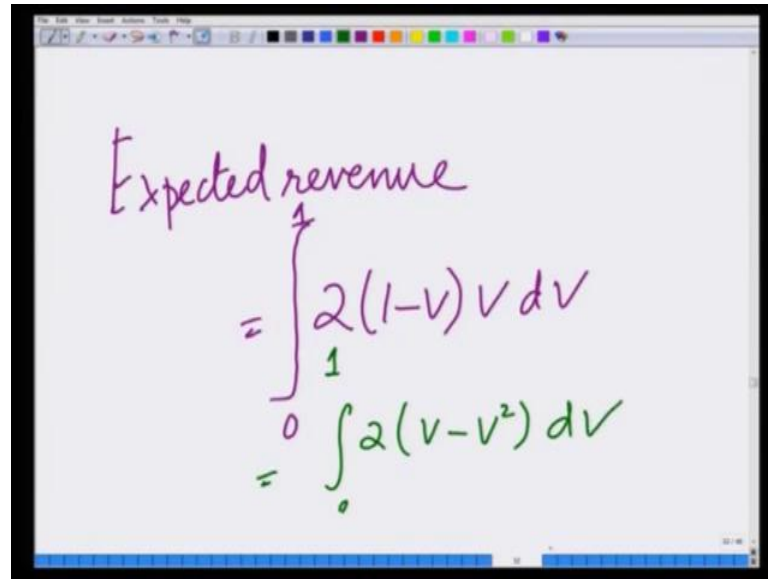 File Edit View Insert Actions Tools Help
Expected revenue
= ∫₀¹ 2(1-V) V dV
= ∫₀¹ 2(V-V²) dV